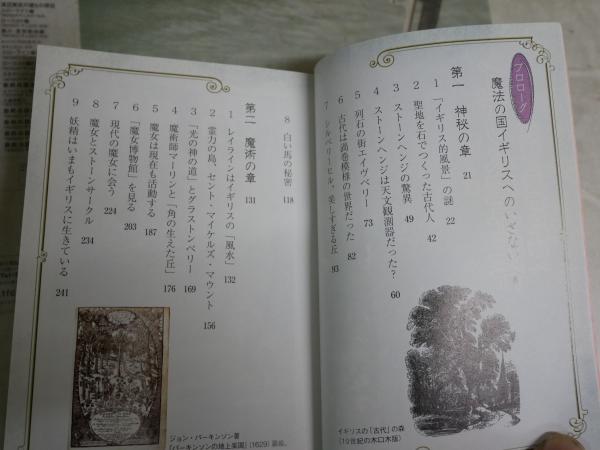 プロローグ
魔法の国イギリスへのいざない
第一 神秘の章 21
1 「イギリス的風景」の謎 22
2 聖地を石でつくった古代人 42
3 ストーンヘンジの驚異 49
4 ストーンヘンジは天文観測器だった? 60
5 列石の街エイヴベリー 73
6 古代は渦巻模様の世界だった 82
7 シルベリーヒル、美しすぎる丘 93
イギリスの「古代」の森
(19世紀の木口木版)
8 白い馬の秘密 118
第二 魔術の章 131
1 レイラインはイギリスの「風水」 132
2 霊力の島、セント・マイケルズ・マウント 156
3 「光の神の道」とグラストンベリー 169
4 魔術師マーリンと「角の生えた丘」 176
5 魔女は現在も活動する 187
6 「魔女博物館」を見る 203
7 現代の魔女に会う 224
8 魔女とストーンサークル 234
9 妖精はいまもイギリスに生きている 241
ジョン・パーキンソン著
『パーキンソンの地上楽園』(1629)扉絵。